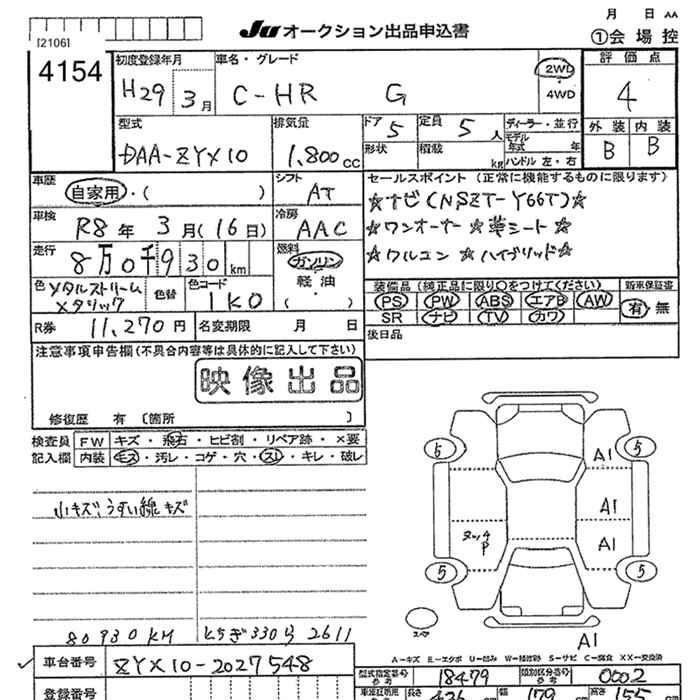 月 日 AA
[2106] Ju オークション出品申込書 ①会場控
4154
初度登録年月 H29 3月
車名・グレード C-HR G
2WD 4WD
評価点 4
外装 B 内装 B
型式 DAA-ZYX10
排気量 1,800 cc
ドア 5 定員 5 人
形状 積載 kg
ディーラー・並行
モデル年式 年
ハンドル 左・右
車歴 自家用・( )
シフト AT
車検 R8年 3月(16日)
冷房 AAC
走行 8万0千930 km
燃料 ガソリン 軽油 ( ・ )
色 メタルストリームメタリック 色替
色コード 1K0
R券 11,270円 名変期限 月 日
セールスポイント(正常に機能するものに限ります)
☆ナビ(NSZT-Y66T)☆
☆ワンオーナー ☆革シート☆
☆フルセグ ☆ハイブリッド☆
装備品(純正品に限り○をつけてください) 新車保証書
PS PW ABS エアB AW 有・無
SR ナビ TV カワ
後日品
注意事項申告欄(不具合内容等は具体的に記入して下さい)
映像出品
修復歴 有〔箇所 〕
検査員 FW キズ・飛石・ヒビ割・リペア跡・×要
記入欄 内装 キズ・汚レ・コゲ・穴・スレ・キレ・破レ
小キズ、うすい線キズ
80930KM とちぎ330ら2611
車台番号 ZYX10-2027548
登録番号
5 5
A1
A1
タッチP A1
5 5
スペア
A1
A-キズ E-エクボ U-凹み W-補修跡 S-サビ C-腐食 XX-交換済
型式指定番号 参考 18479 類別区分番号 参考 0002
長さ 436 幅 179 高さ 155